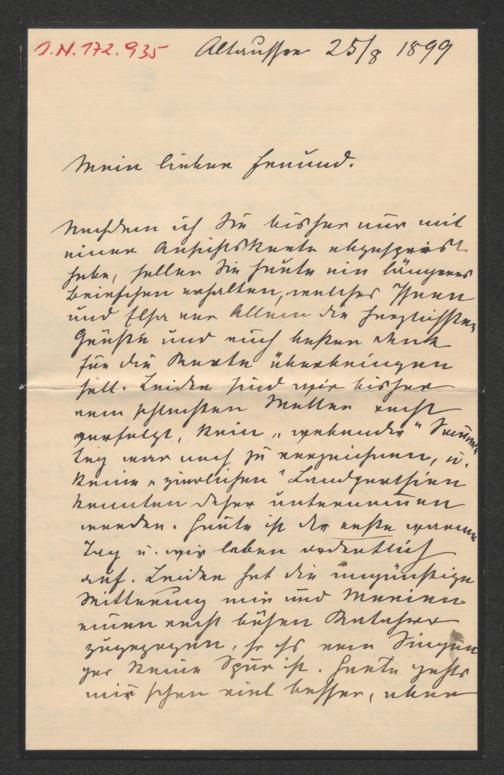 J.N. 172.935
Altaussee 25/8 1899
Mein lieber Freund.
Nachdem ich Sie bisher nur mit
einer Ansichtskarte abgespeist
habe, sollen Sie heute ein längeres
Briefchen erhalten, welches Ihnen
und Elsa vor Allem die herzlichsten
Grüße und auch besten Dank
für die Karte überbringen
soll. Leider sind wir bisher
vom schlechten Wetter recht
verfolgt, kein „webender“
tag war noch zu verzeichnen, u.
keine „zierlichen“ Landparthien
konnten daher unternommen
werden. Heute ist der erste warme
Tag u. wir leben ordentlich
auf. Leider hat die ungünstige
Witterung mir und Marien
einen recht bösen Katarrh
zugezogen, so daß vom Singen
gar keine Spur ist. Heute gehts
mir schon viel besser, aber